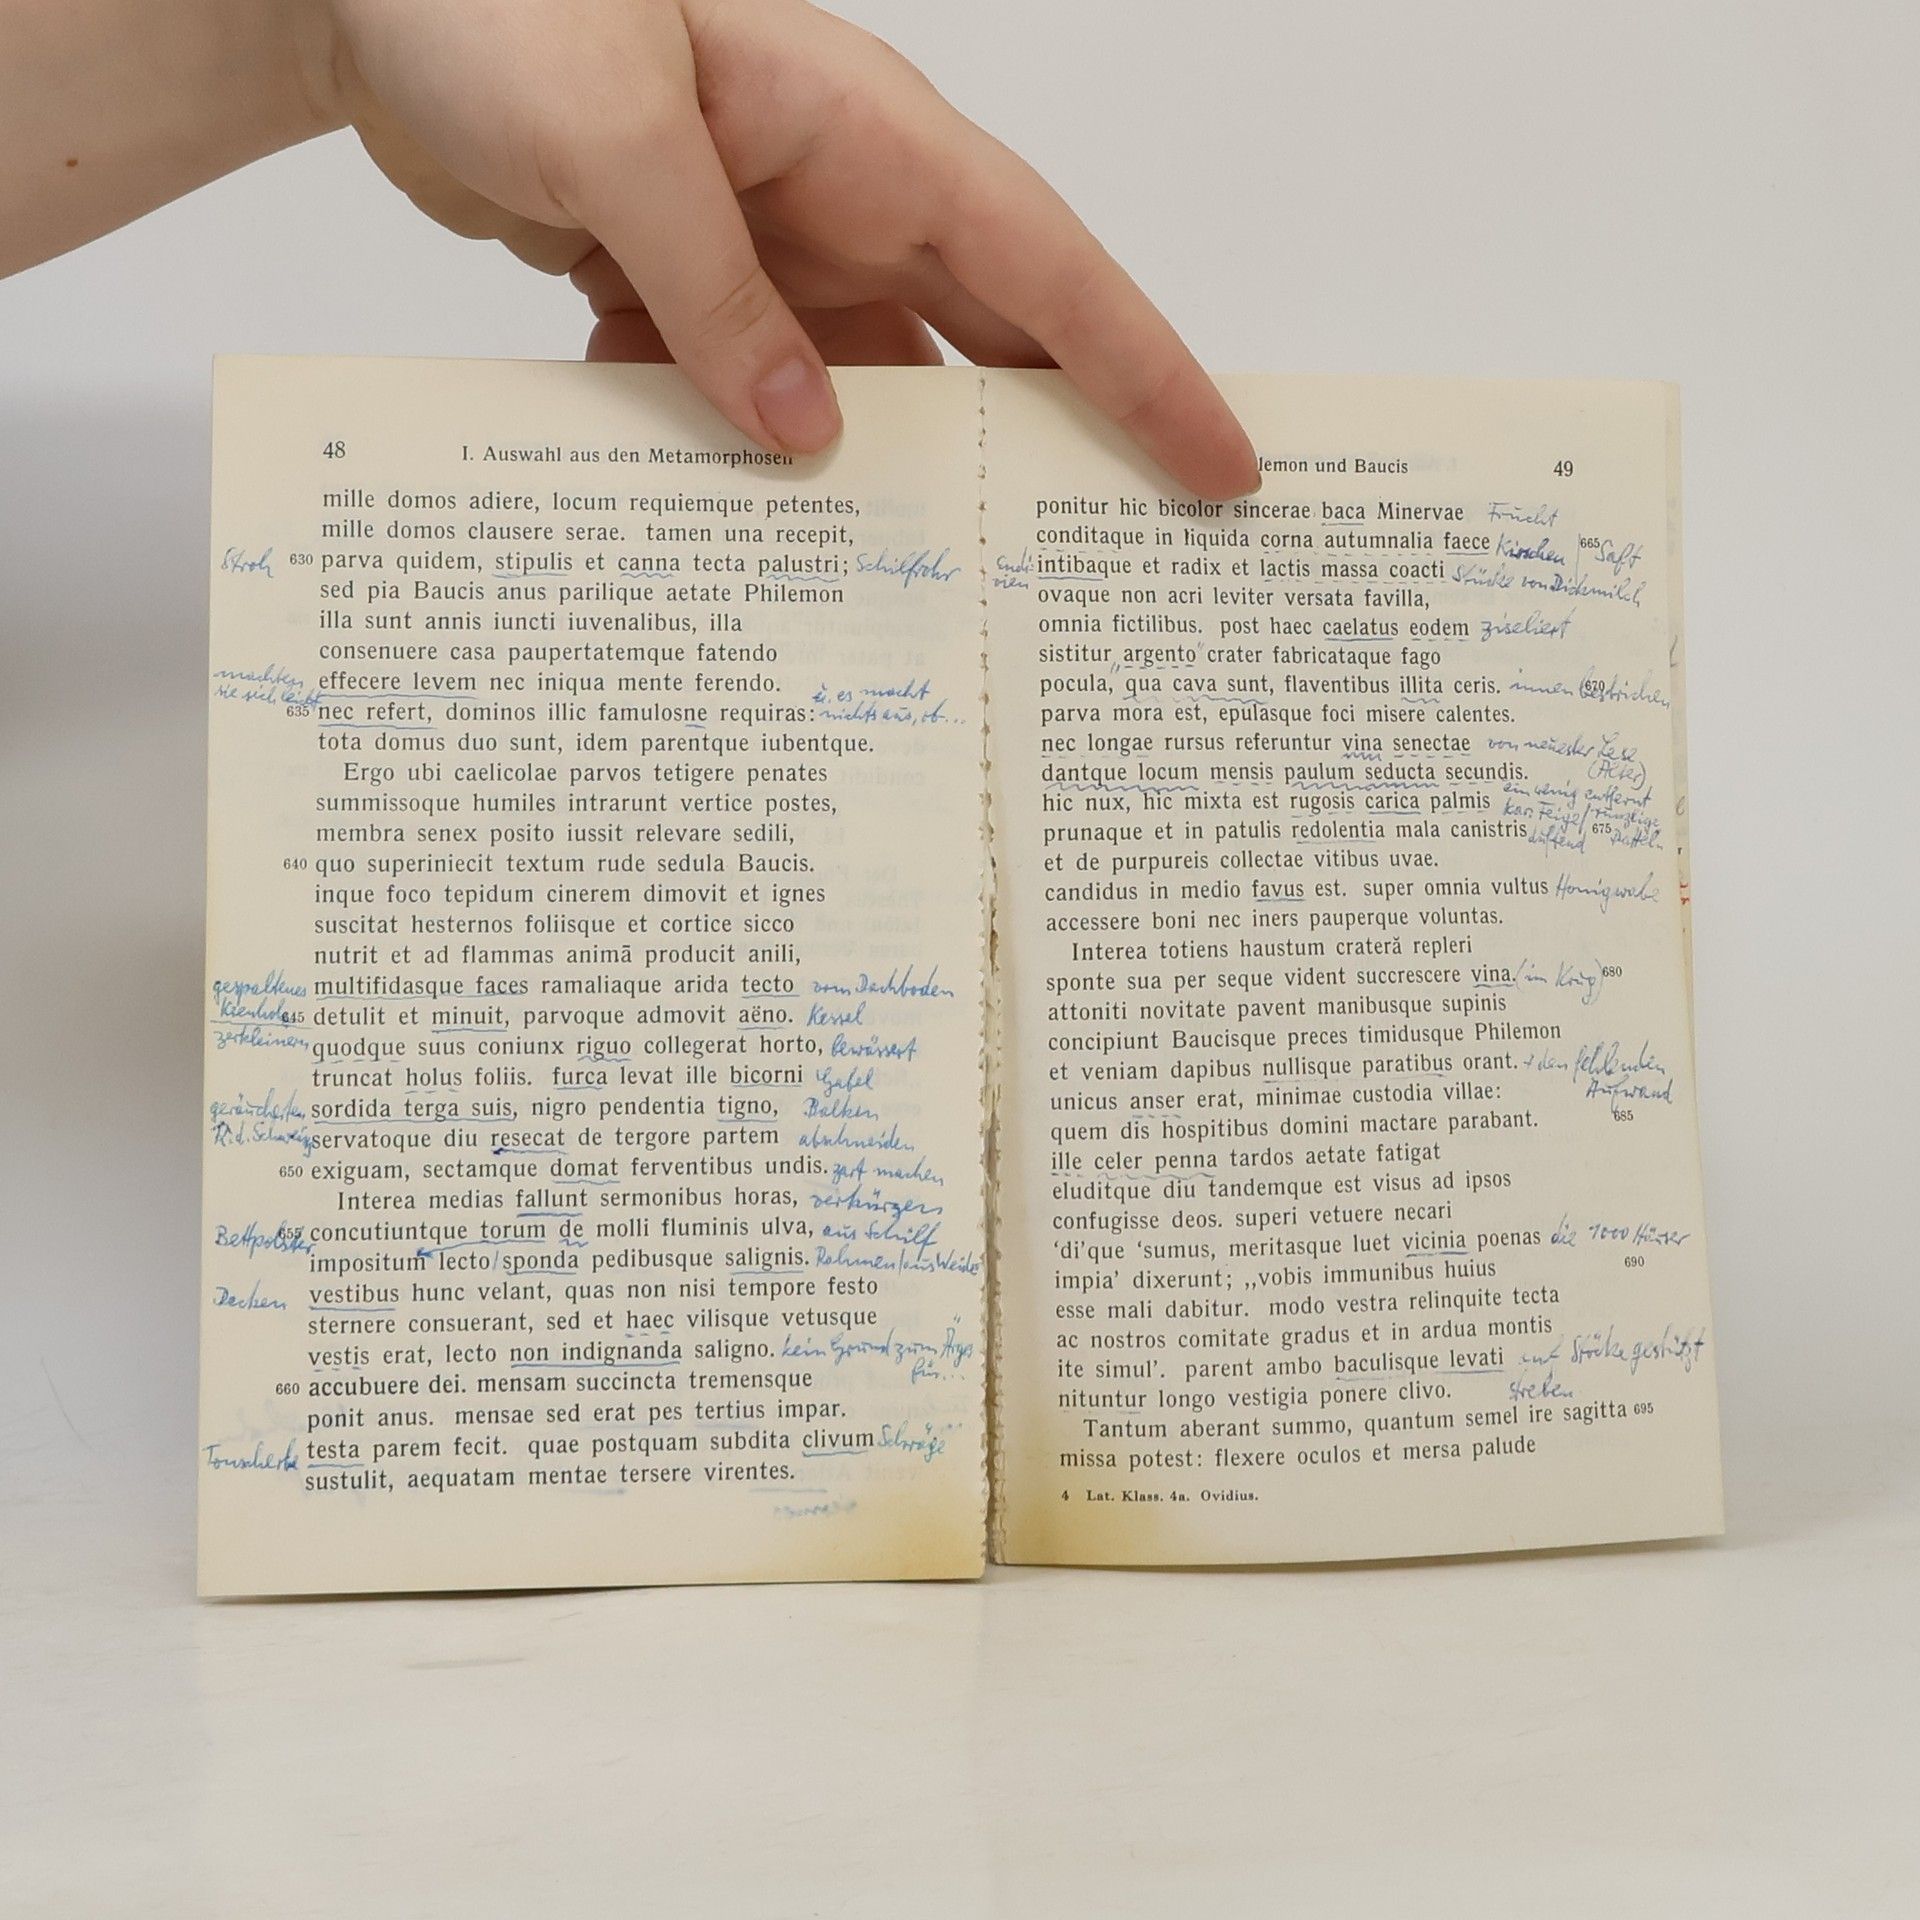 48 I. Auswahl aus den Metamorphosen
mille domos adiere, locum requiemque petentes,
mille domos clausere serae. tamen una recepit,
Stroh 630 parva quidem, stipulis et canna tecta palustri; Schilfrohr
sed pia Baucis anus parilique aetate Philemon
illa sunt annis iuncti iuvenalibus, illa
consenuere casa paupertatemque fatendo
machten sie sich leicht effecere levem nec iniqua mente ferendo.
635 nec refert, dominos illic famulosne requiras: ü. es macht nichts aus, ob...
tota domus duo sunt, idem parentque iubentque.
Ergo ubi caelicolae parvos tetigere penates
summissoque humiles intrarunt vertice postes,
membra senex posito iussit relevare sedili,
640 quo superiniecit textum rude sedula Baucis.
inque foco tepidum cinerem dimovit et ignes
suscitat hesternos foliisque et cortice sicco
nutrit et ad flammas animā producit anili,
gespaltenes Kienholz multifidasque faces ramaliaque arida tecto vom Dachboden
645 detulit et minuit, parvoque admovit aëno. Kessel
zerkleinern quodque suus coniunx riguo collegerat horto, bewässert
truncat holus foliis. furca levat ille bicorni Gabel
geräucherten sordida terga suis, nigro pendentia tigno, Balken
R. d. servatoque diu resecat de tergore partem abschneiden
650 exiguam, sectamque domat ferventibus undis. zart machen
Interea medias fallunt sermonibus horas, verkürzen
Bettpolster 655 concutiuntque torum de molli fluminis ulva, aus Schilf
impositum lecto/sponda pedibusque salignis. Rahmen/aus Weide
Decken vestibus hunc velant, quas non nisi tempore festo
sternere consuerant, sed et haec vilisque vetusque
vestis erat, lecto non indignanda saligno. kein Grund zum Ärger für...
660 accubuere dei. mensam succincta tremensque
ponit anus. mensae sed erat pes tertius impar.
Tonscherbe testa parem fecit. quae postquam subdita clivum Schräge
sustulit, aequatam mentae tersere virentes.
lemon und Baucis 49
ponitur hic bicolor sincerae baca Minervae Frucht
conditaque in liquida corna autumnalia faece Kirschen 665 Saft
Endivien intibaque et radix et lactis massa coacti Stücke von Dickmilch
ovaque non acri leviter versata favilla,
omnia fictilibus. post haec caelatus eodem ziseliert
sistitur „argento“ crater fabricataque fago
pocula, qua cava sunt, flaventibus illita ceris. innen 670 bestrichen
parva mora est, epulasque foci misere calentes.
nec longae rursus referuntur vina senectae von neuester Lese (Alter)
dantque locum mensis paulum seducta secundis. ein wenig entfernt
hic nux, hic mixta est rugosis carica palmis kar. Feige/runzlige Datteln
prunaque et in patulis redolentia mala canistris duftend 675
et de purpureis collectae vitibus uvae.
candidus in medio favus est. super omnia vultus Honigwabe
accessere boni nec iners pauperque voluntas.
Interea totiens haustum craterā repleri
sponte sua per seque vident succrescere vina. (im Krug) 680
attoniti novitate pavent manibusque supinis
concipiunt Baucisque preces timidusque Philemon
et veniam dapibus nullisque paratibus orant. + den fehlenden Aufwand
unicus anser erat, minimae custodia villae:
quem dis hospitibus domini mactare parabant. 685
ille celer penna tardos aetate fatigat
eluditque diu tandemque est visus ad ipsos
confugisse deos. superi vetuere necari
‘di’que ‘sumus, meritasque luet vicinia poenas die 1000 Häuser
impia’ dixerunt; „vobis immunibus huius 690
esse mali dabitur. modo vestra relinquite tecta
ac nostros comitate gradus et in ardua montis
ite simul’. parent ambo baculisque levati auf Stöcke gestützt
nituntur longo vestigia ponere clivo. streben
Tantum aberant summo, quantum semel ire sagitta 695
missa potest: flexere oculos et mersa palude
4 Lat. Klass. 4a. Ovidius.